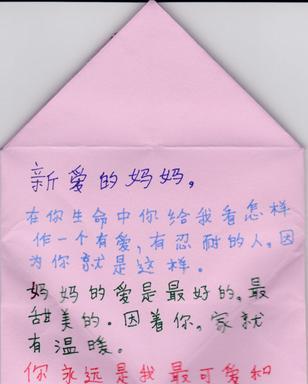 新爱的妈妈,
在你生命中你给我看怎样
作一个有爱,有忍耐的人。因
为你就是这样。
妈妈的爱是最好的。最
甜美的。因着你,家就
有温暖。
你永远是我最可爱和